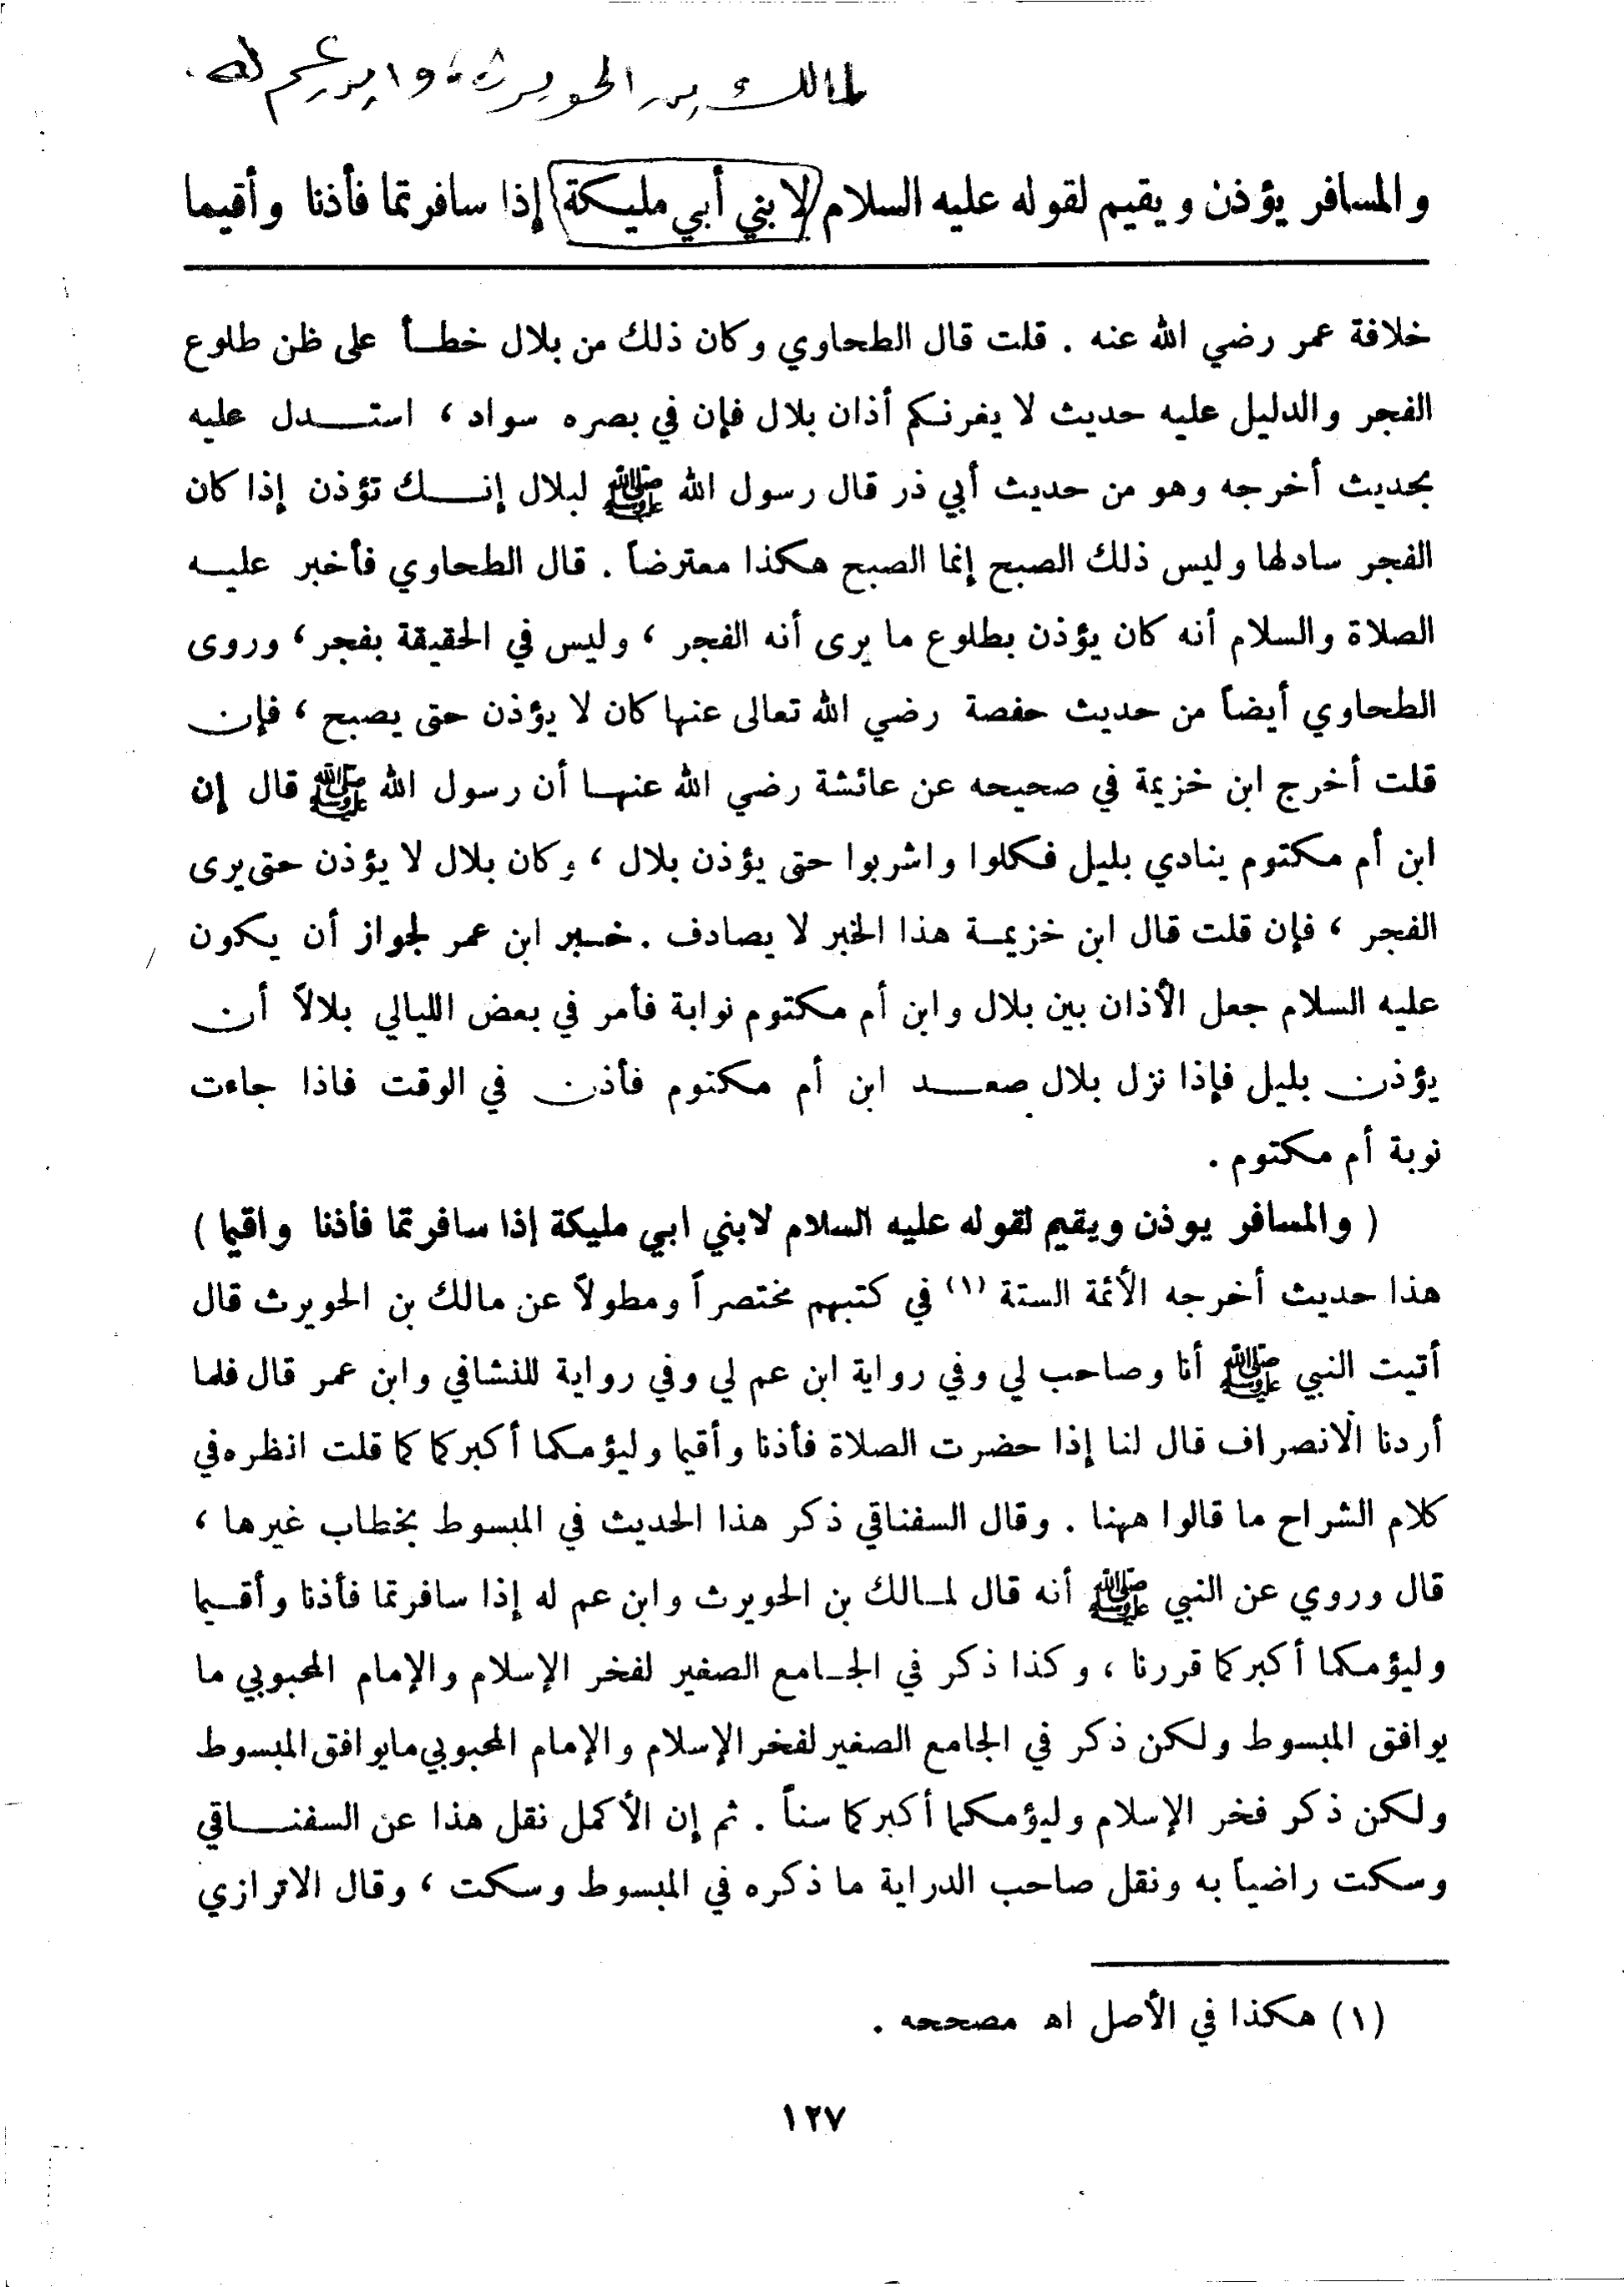 لمالك بن الحويرث، وابن عم له.
والمسافر يؤذن ويقيم لقوله عليه السلام لابني أبي مليكة إذا سافرتما فأذنا وأقيما
خلافة عمر رضي الله عنه . قلت قال الطحاوي وكان ذلك من بلال خطأ على ظن طلوع
الفجر والدليل عليه حديث لا يغرنكم أذان بلال فإن في بصره سواد ، استدل عليه
بحديث أخرجه وهو من حديث أبي ذر قال رسول الله ﷺ لبلال إنك تؤذن إذا كان
الفجر سادلها وليس ذلك الصبح إنما الصبح هكذا معترضاً . قال الطحاوي فأخبر عليه
الصلاة والسلام أنه كان يؤذن بطلوع ما يرى أنه الفجر ، وليس في الحقيقة بفجر ، وروى
الطحاوي أيضاً من حديث حفصة رضي الله تعالى عنها كان لا يؤذن حتى يصبح ، فإن
قلت أخرج ابن خزيمة في صحيحه عن عائشة رضي الله عنها أن رسول الله ﷺ قال إن
ابن أم مكتوم ينادي بليل فكلوا واشربوا حتى يؤذن بلال ، وكان بلال لا يؤذن حتى يرى
الفجر ، فإن قلت قال ابن خزيمة هذا الخبر لا يصادف . خبر ابن عمر لجواز أن يكون
عليه السلام جعل الأذان بين بلال وابن أم مكتوم نوابة فأمر في بعض الليالي بلالاً أن
يؤذن بليل فإذا نزل بلال صعد ابن أم مكتوم فأذن في الوقت فاذا جاءت
نوبة أم مكتوم .
( والمسافر يوذن ويقيم لقوله عليه السلام لابني ابي مليكة إذا سافرتما فأذنا واقيما )
هذا حديث أخرجه الأئمة الستة (١) في كتبهم مختصراً ومطولاً عن مالك بن الحويرث قال
أتيت النبي ﷺ أنا وصاحب لي وفي رواية ابن عم لي وفي رواية للنشافي وابن عمر قال فلما
أردنا الانصراف قال لنا إذا حضرت الصلاة فأذنا وأقيما وليؤمكما أكبركما كما قلت انظره في
كلام الشراح ما قالوا ههنا . وقال السفناقي ذكر هذا الحديث في المبسوط بخطاب غيرها ،
قال وروي عن النبي ﷺ أنه قال لمالك بن الحويرث وابن عم له إذا سافرتما فأذنا وأقيما
وليؤمكما أكبركما قررنا ، وكذا ذكر في الجامع الصغير لفخر الإسلام والإمام المحبوبي ما
يوافق المبسوط ولكن ذكر في الجامع الصغير لفخر الإسلام والإمام المحبوبي ما يوافق المبسوط
ولكن ذكر فخر الإسلام وليؤمكما أكبركما سناً . ثم إن الأكمل نقل هذا عن السفناقي
وسكت راضياً به ونقل صاحب الدراية ما ذكره في المبسوط وسكت ، وقال الاترازي
(١) هكذا في الأصل اه مصححه .
١٢٧